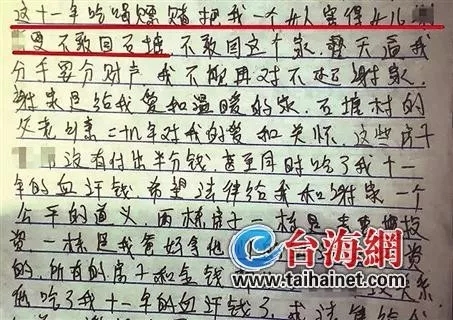 这十一年吃喝嫖赌把我一个女人害得女儿
不敢回石塘,不敢回这个家.整天逼我
分手要分财产.我不能再对不起谢家.
谢家是给我爱和温暖的家.石塘村的
父老乡亲二十九年对我的爱和关怀.这些房子
没有付出半分钱.甚至同时吃了我十一
年的血汗钱.希望法律给我和谢家一个
公平的道义.两栋房子一栋是
资.一栋是我爸好拿他
的.所有的房子和金钱
他吃了我十一年的血汗钱了.求法律给
台海網
www.taihainet.com